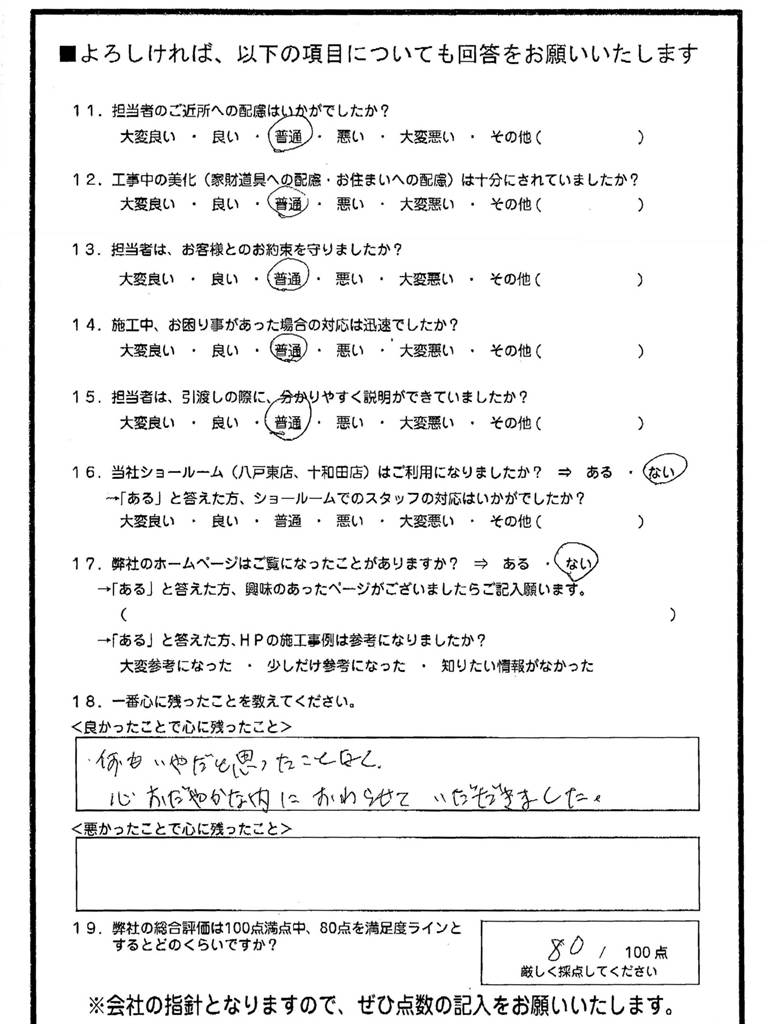 ■よろしければ、以下の項目についても回答をお願いいたします
11．担当者のご近所への配慮はいかがでしたか？
大変良い ・ 良い ・ 普通 ・ 悪い ・ 大変悪い ・ その他（　　　　　　）
12．工事中の美化（家財道具への配慮・お住まいへの配慮）は十分にされていましたか？
大変良い ・ 良い ・ 普通 ・ 悪い ・ 大変悪い ・ その他（　　　　　　）
13．担当者は、お客様とのお約束を守りましたか？
大変良い ・ 良い ・ 普通 ・ 悪い ・ 大変悪い ・ その他（　　　　　　）
14．施工中、お困り事があった場合の対応は迅速でしたか？
大変良い ・ 良い ・ 普通 ・ 悪い ・ 大変悪い ・ その他（　　　　　　）
15．担当者は、引渡しの際に、分かりやすく説明ができていましたか？
大変良い ・ 良い ・ 普通 ・ 悪い ・ 大変悪い ・ その他（　　　　　　）
16．当社ショールーム（八戸東店、十和田店）はご利用になりましたか？ ⇒ ある ・ ない
→「ある」と答えた方、ショールームでのスタッフの対応はいかがでしたか？
大変良い ・ 良い ・ 普通 ・ 悪い ・ 大変悪い ・ その他（　　　　　　）
17．弊社のホームページはご覧になったことがありますか？ ⇒ ある ・ ない
→「ある」と答えた方、興味のあったページがございましたらご記入願います。
（　　　　　　　　　　　　　　　　　　）
→「ある」と答えた方、HPの施工事例は参考になりましたか？
大変参考になった ・ 少しだけ参考になった ・ 知りたい情報がなかった
18．一番心に残ったことを教えてください。
<良かったことで心に残ったこと>
何もいやだと思ったことなく、
心おだやかな内におわらせていただきました。
<悪かったことで心に残ったこと>
19．弊社の総合評価は100点満点中、80点を満足度ラインと
するとどのくらいですか？
80 / 100点
厳しく採点してください
※会社の指針となりますので、ぜひ点数の記入をお願いいたします。